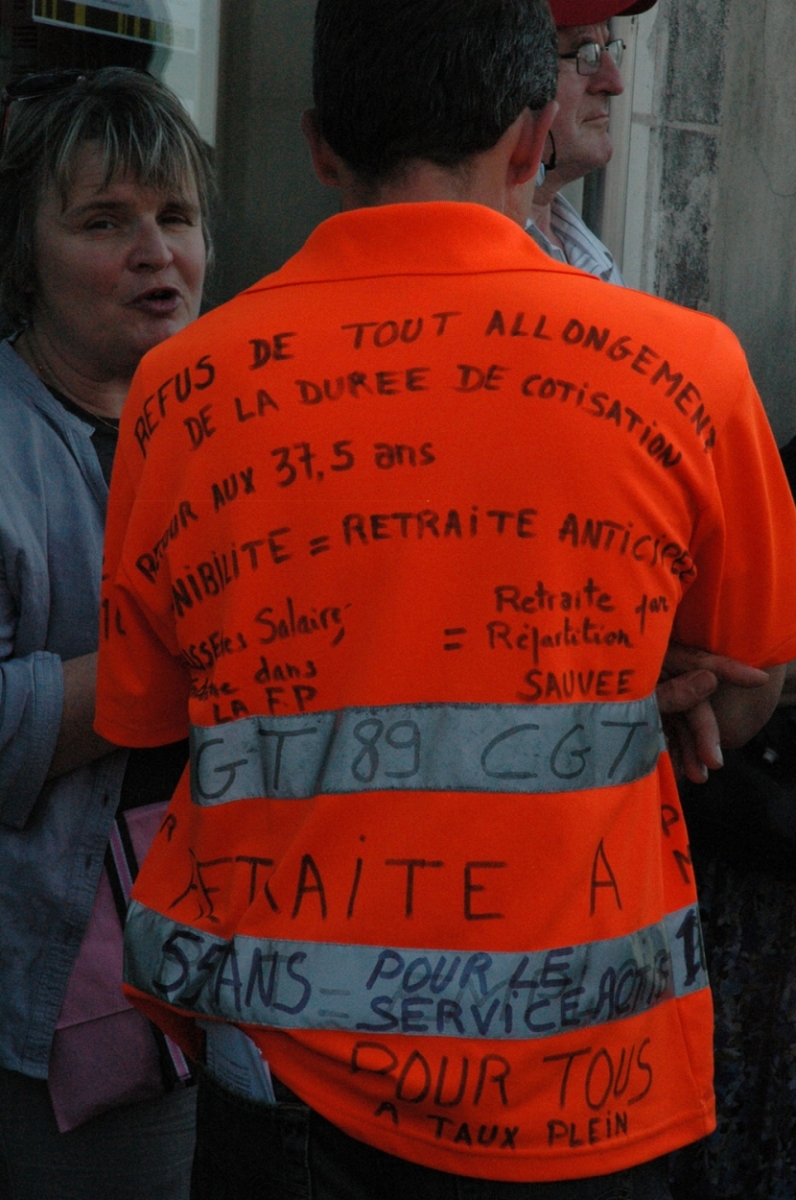 REFUS DE TOUT ALLONGEMENT
DE LA DUREE DE COTISATION
RETOUR AUX 37,5 ans
NIBILITE = RETRAITE ANTICIPEE
Salaires = Retraite par
Répartition
dans
LA F.P SAUVEE
GT 89 CGT
RETRAITE A
55 ANS = POUR LE
SERVICE ACTIF
POUR TOUS
A TAUX PLEIN